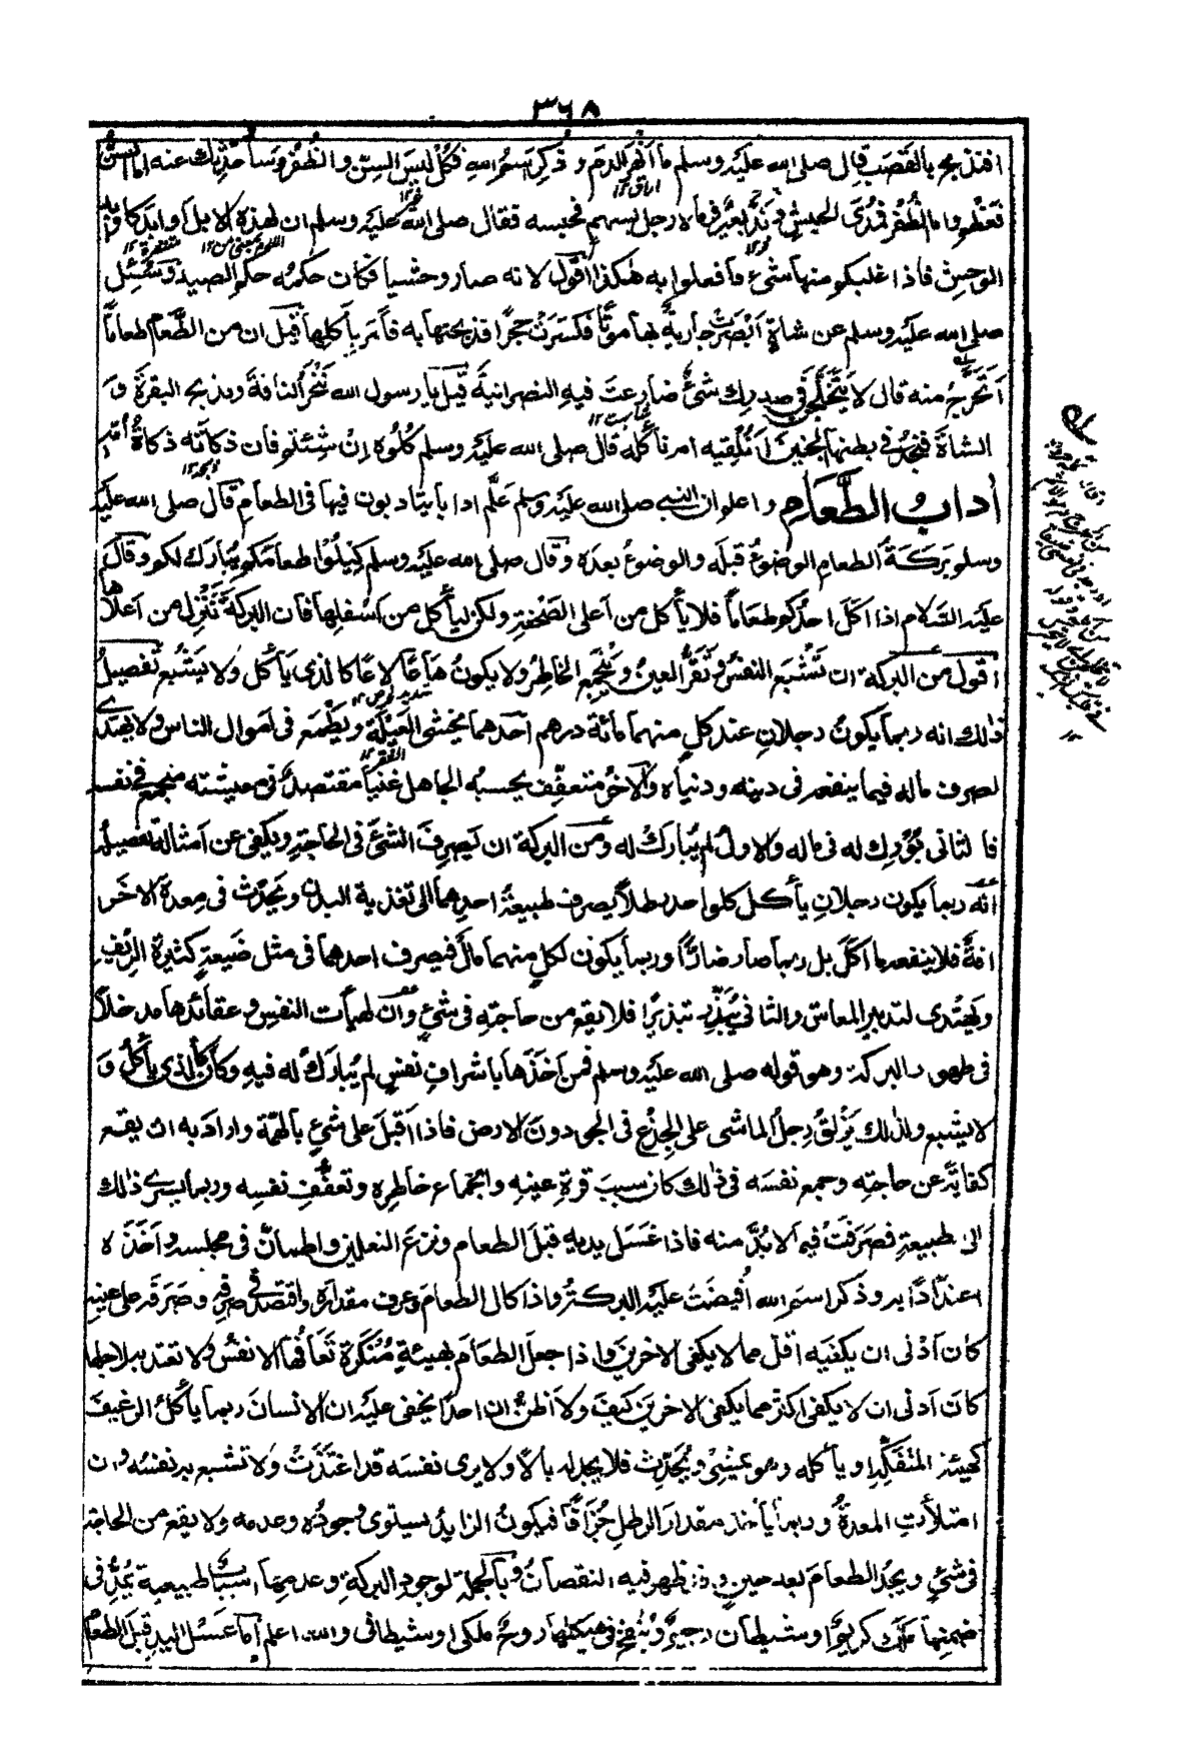 ٣٦٨
افنذبح بالقصب قال صلى الله عليه وسلم ما انهر الدم و ذكر اسم الله فكُلْ ليس السِنّ والظفر وسأحدثك عنه اما السن
فعظم واما الظُفُر فمُدَى الحبش و نَدَّ بعير فرماه رجل بسهم فحبسه فقال صلى الله عليه وسلم ان لهذه الابل اوابد كاوابد
الوحش فاذا غلبكم منها شئ فافعلوا به هكذا اقول لانه صار وحشيا فكان حكمه حكم الصيد وسُئِل
صلى الله عليه وسلم عن شاة اَبْصَرَتْ جارية بها موتًا فكسرت حجرًا فذبحتها به فأمَر بأكلها قيل ان من الطَّعام طعامًا
اَتحرج منه قال لا يتخلجن في صدرك شئ ضارعتَ فيه النصرانية قيل يا رسول الله نَنْحَر الناقة ونذبح البقرة وَ
الشاة فنجد في بطنها الجنين اَنُلْقيه ام نأكله قال صلى الله عليه وسلم كُلُوه اِنْ شِئتم فان ذكاته ذكاة اُمّه
اٰداب الطَّعَام واعلم ان النبي صلى الله عليه وسلم علَّم ادابا يتادبون فيها في الطعام قال صلى الله عليه
وسلم بَرَكَةُ الطعامِ الوضوءُ قبلَه والوضوءُ بعدَه وقال صلى الله عليه وسلم كِيْلُوْا طعامَكم يُبارَك لكم وقال
عليه السَّلام اذا اَكَلَ احدُكم طعَامًا فلا يأكل من اَعلى الصَّحْفة ولكن ليأكل من اَسْفلها فان البركة تَنْزِل من اَعلاها
اقول من البركة ان تَشْبَع النفسُ وتَقَرَّ العينُ ويَنْجَمِع الخاطِرُ ولا يكونُ هَاعًا لاعًا كالذى يَأكُل ولا يَشْبَع تَفصِيلُ
ذٰلك انه ربما يكونُ رجلان عند كل منهما مائة درهم اَحدهما يخشى العَيْلَة ويَطْمَع فى اَموال الناس ولا يهتدى
لصرف ماله فيما ينفعه فى دينه ودنياه والاٰخَرُ متعفِّف يحسبُه الجاهل غنيًا مقتصد فى معيشته منجمع فى نفسه
فالثانى بُوْرِك له فى ماله والاول لم يُبارَكْ له ومن البركة ان يَصرِفَ الشئَ فى الحاجة ويكفى عن اَمثاله تفصيله
انه ربما يكون رجلانِ يأكل كل واحد رطلًا يصرف طبيعةُ احدهما الى تغذية البدن ويَحْدُث فى مِعدة الاٰخَر
اٰفةٌ فلا ينفعه ما اَكَلَ بل ربما صار ضارًا وربما يكون لكلٍ منهما مالٌ فيصرف احدهما فى مثل ضَيعةٍ كثيرة الرِّيفِ
ويَهْتدى لتدبير المعاش والثانى يُبَذِّر تبذيرًا فلا يقع من حاجته فى شئٍ وانّ لهيأت النفس وعقائدها مدخلًا
فى ظهور البركة وهو قوله صلى الله عليه وسلم فمن اَخَذَها باشرافِ نفسٍ لم يُبارَك له فيه وكان كالذى يأكل وَ
لا يشبع ولذلك يَزْلَقُ رِجلُ الماشى على الجِذْع فى الجو دونَ الارض فاذا اَقبَلَ على شئٍ بالهِمّة وارادَ به ان يقع
كفايةً عن حاجتِه وجمع نفسَه فى ذٰلك كان سببَ قرةِ عينِه وانجماع خاطِرِه وتعفُّفِ نفسِه وربما يسرى ذالك
الى طبيعةٍ فصَرَفَتْ فيما لا بُدَّ منه فاذا غَسَلَ يديه قبلَ الطعام ونزعَ النعلين واطمأنَّ فى مجلسه واَخَذَه
اعتدادًا به وذكر اسم الله اُفيضَتْ عليه البركة واذا كال الطعامَ وعرف مقدارَه واقتصد فى صرفِه وصَرَفَه على عينه
كان اَدْنى ان يكفيَه اقلّ مما لا يكفى الاخرين واذا جعل الطعامَ بهيئةٍ مُنَكَّرة تَعَافُها الانفسُ ولا تعتد به لاجلها
كان اَدنى ان لا يكفى اكثر مما يكفى الاخرين كيف ولا اَظنُّ ان احدًا يخفى عليه ان الانسانَ ربما يأكلُ الرغيفَ
كهيئة المتفَكِّه او يأكله وهو يمشى ويُحَدِّث فلا يجد له بالًا ولا يرى نفسَه قد اغتَذَتْ ولا تشبع به نفسُه وان
امتلأتِ المعدةُ وربما يأخذ مقدارَ الرطلِ جُزَافًا فيكونُ الزايدُ يستوى وجودُه وعدمه ولا يقع من الحاجة
فى شئٍ ويجدُ الطعامَ بعد حينٍ و قد ظهر فيه النقصانُ وبالجملة لوجودِ البركةِ وعدمِها اسبابٌ طبيعية يُمِدُّ فى
ضمنِها مَلَكٌ كريمٌ او شيطان رجيمٌ ويُنفخ فى هيكلها روحٌ ملكى او شيطانى والله اعلم اَمّا غسل اليد قبل الطعام